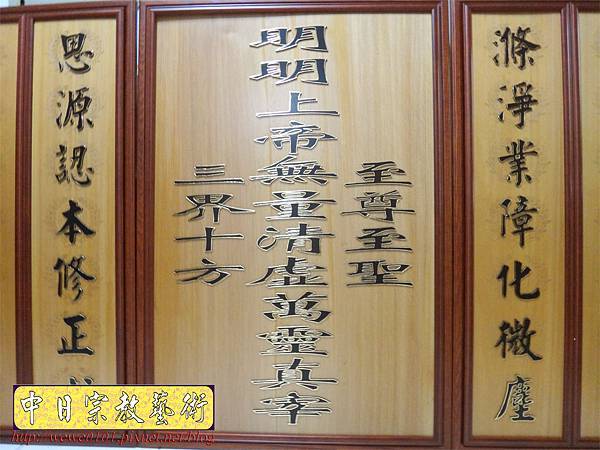 滌淨業障化微塵
至尊至聖
明明上帝無量清虛萬靈真宰
三界十方
思源認本修正
中日宗教藝術
http://wewe0101.pixnet.net/blog